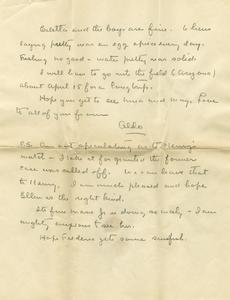 Estella and the boys are fine. 6 hens
laying pretty near an egg apiece every day.
Fishing no good - water pretty near solid.
I will have to go into the field (Arizona)
about April 15 for a long trip.
Hope you get to see ma and may. Love
to all of you from
Aldo
P.S. Am not speculating as to Henry's
match - I take it for granted the former
case was called off. We can leave that
to Henry. I am much pleased and hope
Ellen is the right kind.
Its fine to see Jo is doing so nicely - I am
mighty anxious to see her.
Hope Frederic gets some